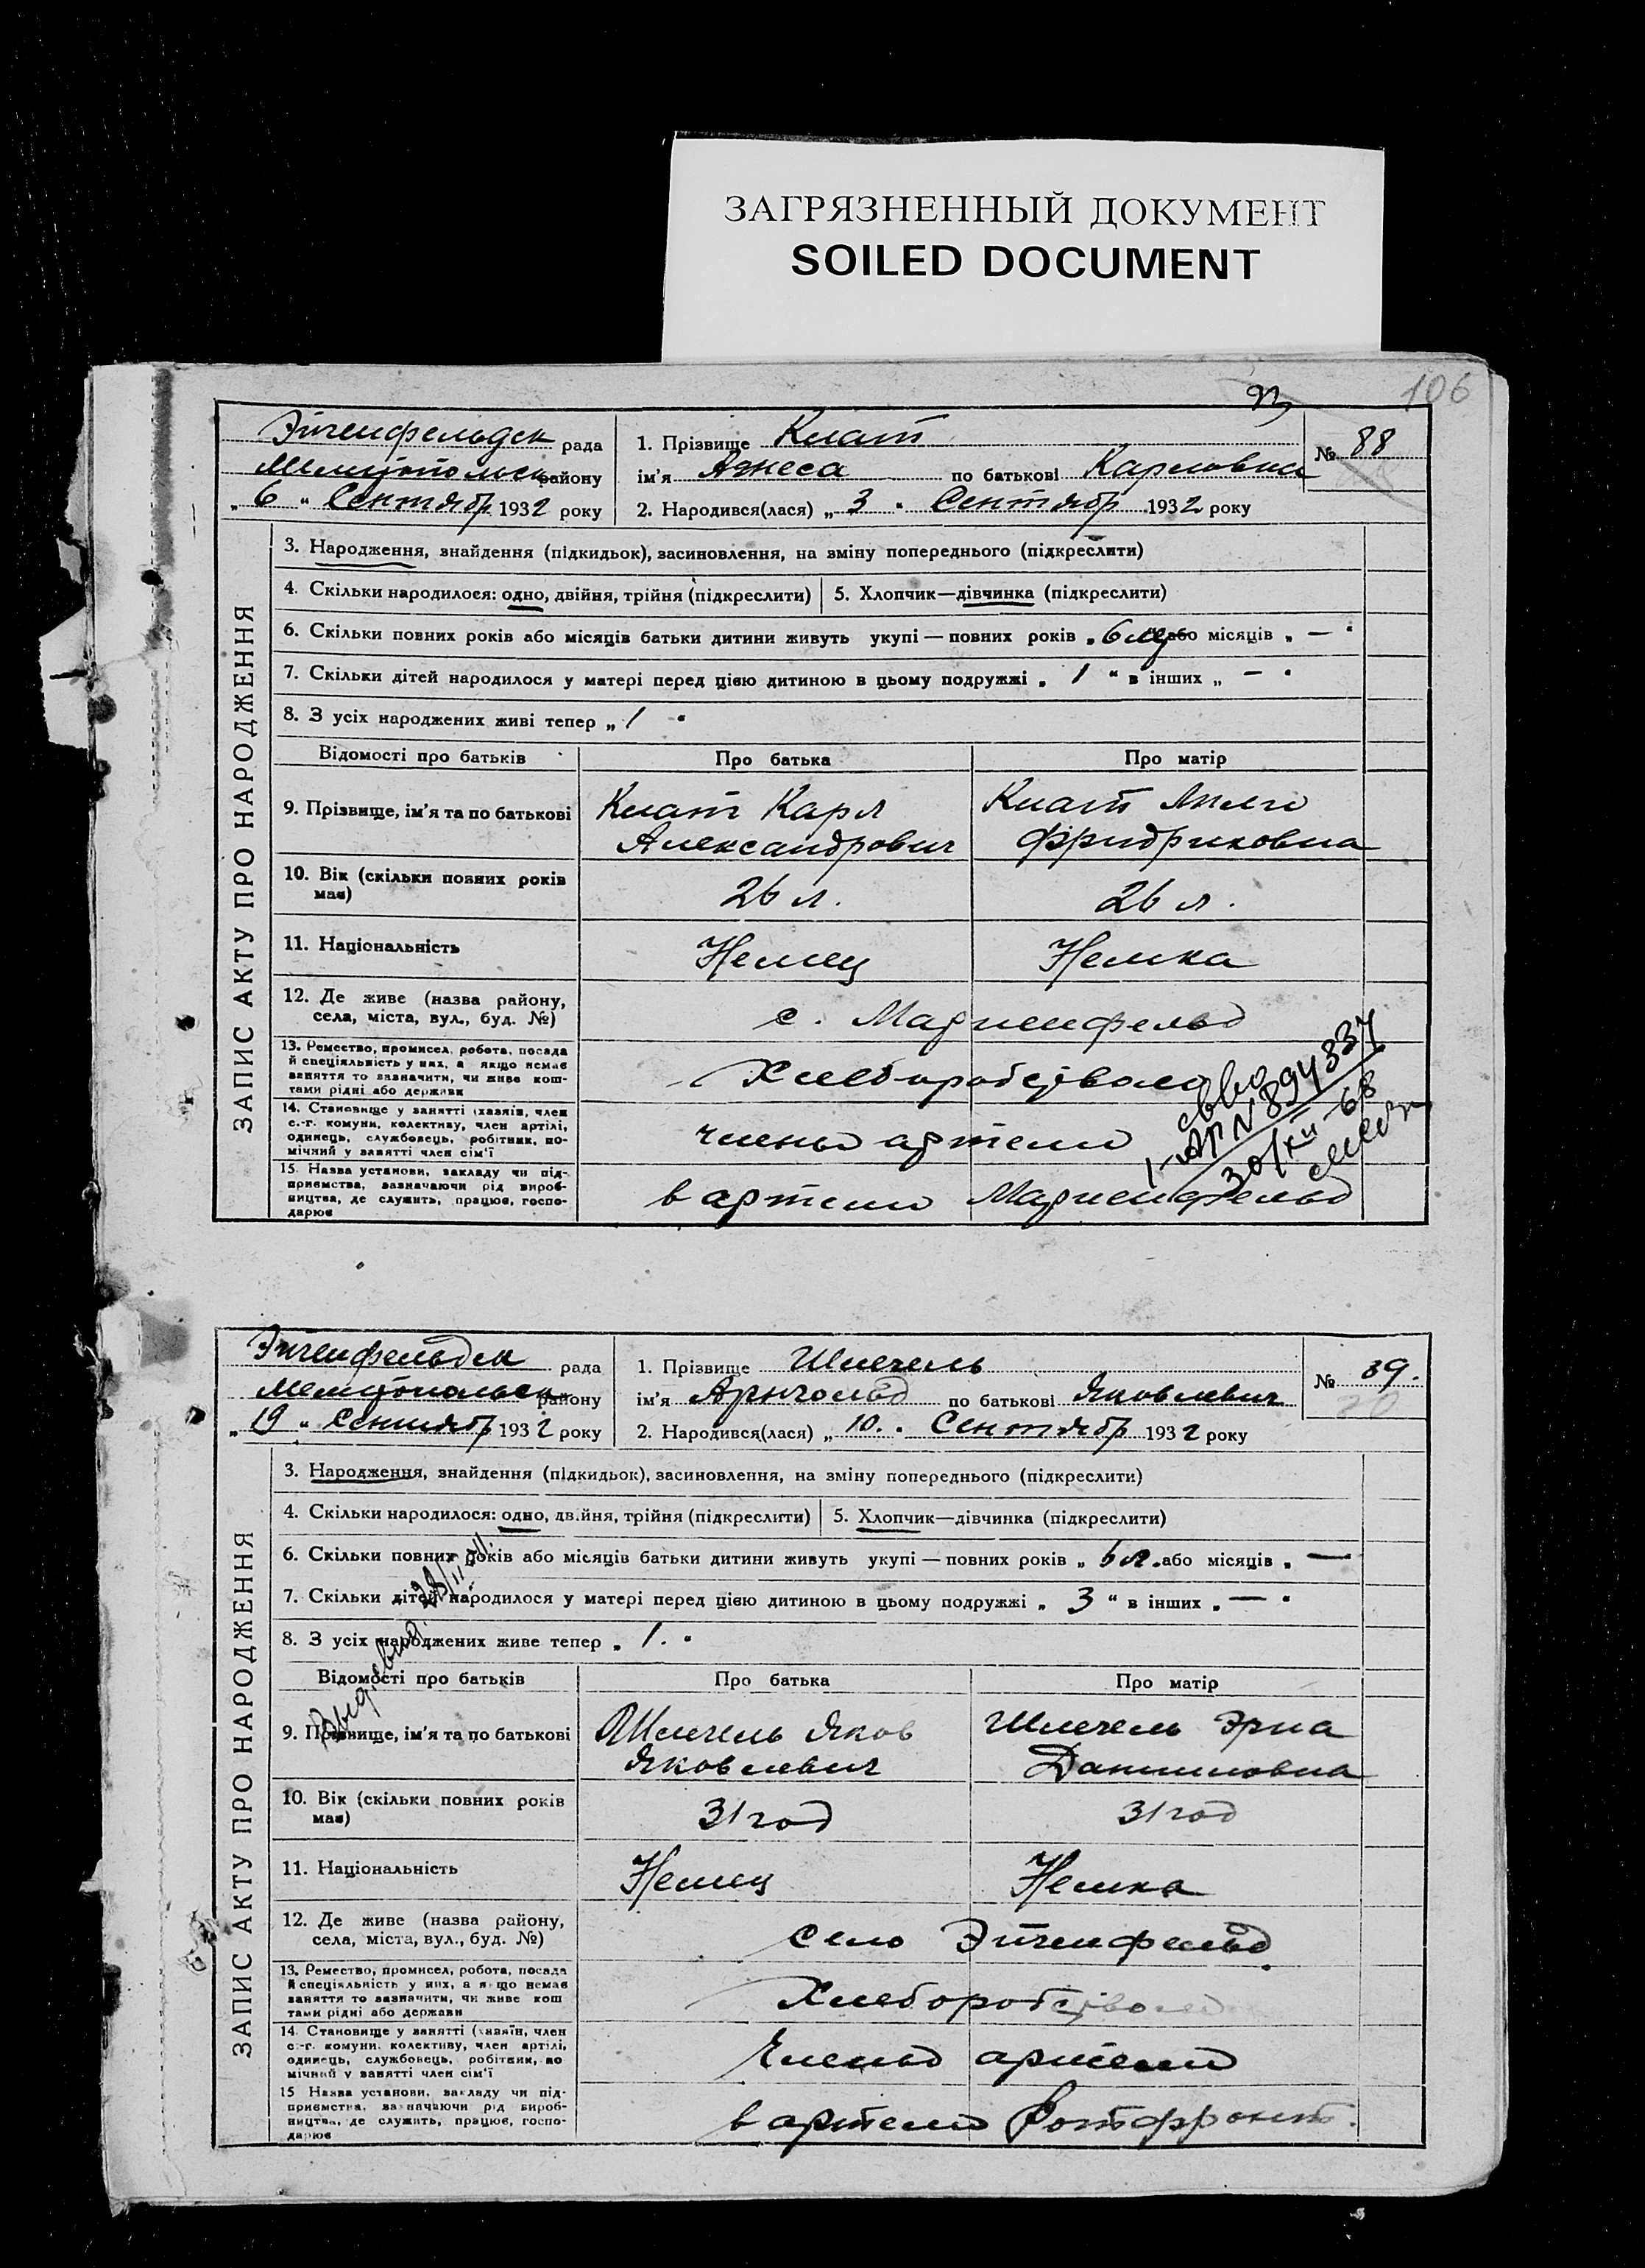 ЗАГРЯЗНЕННЫЙ ДОКУМЕНТ
SOILED DOCUMENT
106
93
Эйгенфельдск рада
Мелитопольск району
„ 6 " Сентябр 1932 року
1. Прізвище Кнат
ім'я Агнеса по батькові Карловна
2. Народився(лася) „ 3 " Сентябр 1932 року
№ 88
ЗАПИС АКТУ ПРО НАРОДЖЕННЯ
3. Народження, знайдення (підкидьок), засиновлення, на зміну попереднього (підкреслити)
4. Скільки народилося: одно, двійня, трійня (підкреслити) 5. Хлопчик—дівчинка (підкреслити)
6. Скільки повних років або місяців батьки дитини живуть укупі — повних років „ 6 або місяців „ — "
7. Скільки дітей народилося у матері перед цією дитиною в цьому подружжі „ 1 " в інших „ — "
8. З усіх народжених живі тепер „ 1 "
Відомості про батьків Про батька Про матір
9. Прізвище, ім'я та по батькові Кнат Карл Кнат
Александрович Фридриховна
10. Вік (скільки повних років
має) 26 л. 26 л.
11. Національність Немец Немка
12. Де живе (назва району,
села, міста, вул., буд. №) с. Мариенфельд
13. Ремество, промисел, робота, посада
й спеціяльність у них, а якщо немає
заняття то зазначити, чи живе кош-
тами рідні або держави Хлеборобством
14. Становище у занятті (хазяїн, член
с.-г. комуни, колективу, член артілі,
одинець, службовець, робітник, по-
мічний у занятті член сім'ї члены артели
15. Назва установи, закладу чи під-
приємства, зазначаючи рід вироб-
ництва, де служить, працює, госпо-
дарює в артели Мариенфельд
№ 894337
30/XII-68
Эйгенфельдск рада
Мелитопольск району
„ 19 " Сентябр 1932 року
1. Прізвище Шлегель
ім'я Арнгольд по батькові Яковлевич
2. Народився(лася) „ 10. " Сентябр 1932 року
№ 89.
ЗАПИС АКТУ ПРО НАРОДЖЕННЯ
3. Народження, знайдення (підкидьок), засиновлення, на зміну попереднього (підкреслити)
4. Скільки народилося: одно, двійня, трійня (підкреслити) 5. Хлопчик—дівчинка (підкреслити)
6. Скільки повних років або місяців батьки дитини живуть укупі — повних років „ 6 л. або місяців „ —
7. Скільки дітей народилося у матері перед цією дитиною в цьому подружжі „ 3 " в інших „ — "
8. З усіх народжених живе тепер „ 1. "
Відомості про батьків Про батька Про матір
9. Прізвище, ім'я та по батькові Шлегель Яков Шлегель Эрна
Яковлевич Данииловна
10. Вік (скільки повних років
має) 31 год 31 год
11. Національність Немец Немка
12. Де живе (назва району,
села, міста, вул., буд. №) село Эйгенфельд
13. Ремество, промисел, робота, посада
й спеціяльність у них, а якщо немає
заняття то зазначити, чи живе кош
тами рідні або держави Хлеборобством
14. Становище у занятті (хазяїн, член
с.-г. комуни, колективу, член артілі,
одинець, службовець, робітник, по
мічний у занятті член сім'ї Члены артели
15 Назва установи, закладу чи під-
приємства, зазначаючи рід вироб-
ництва, де служить, працює, госпо-
дарює в артели Ротфронт.